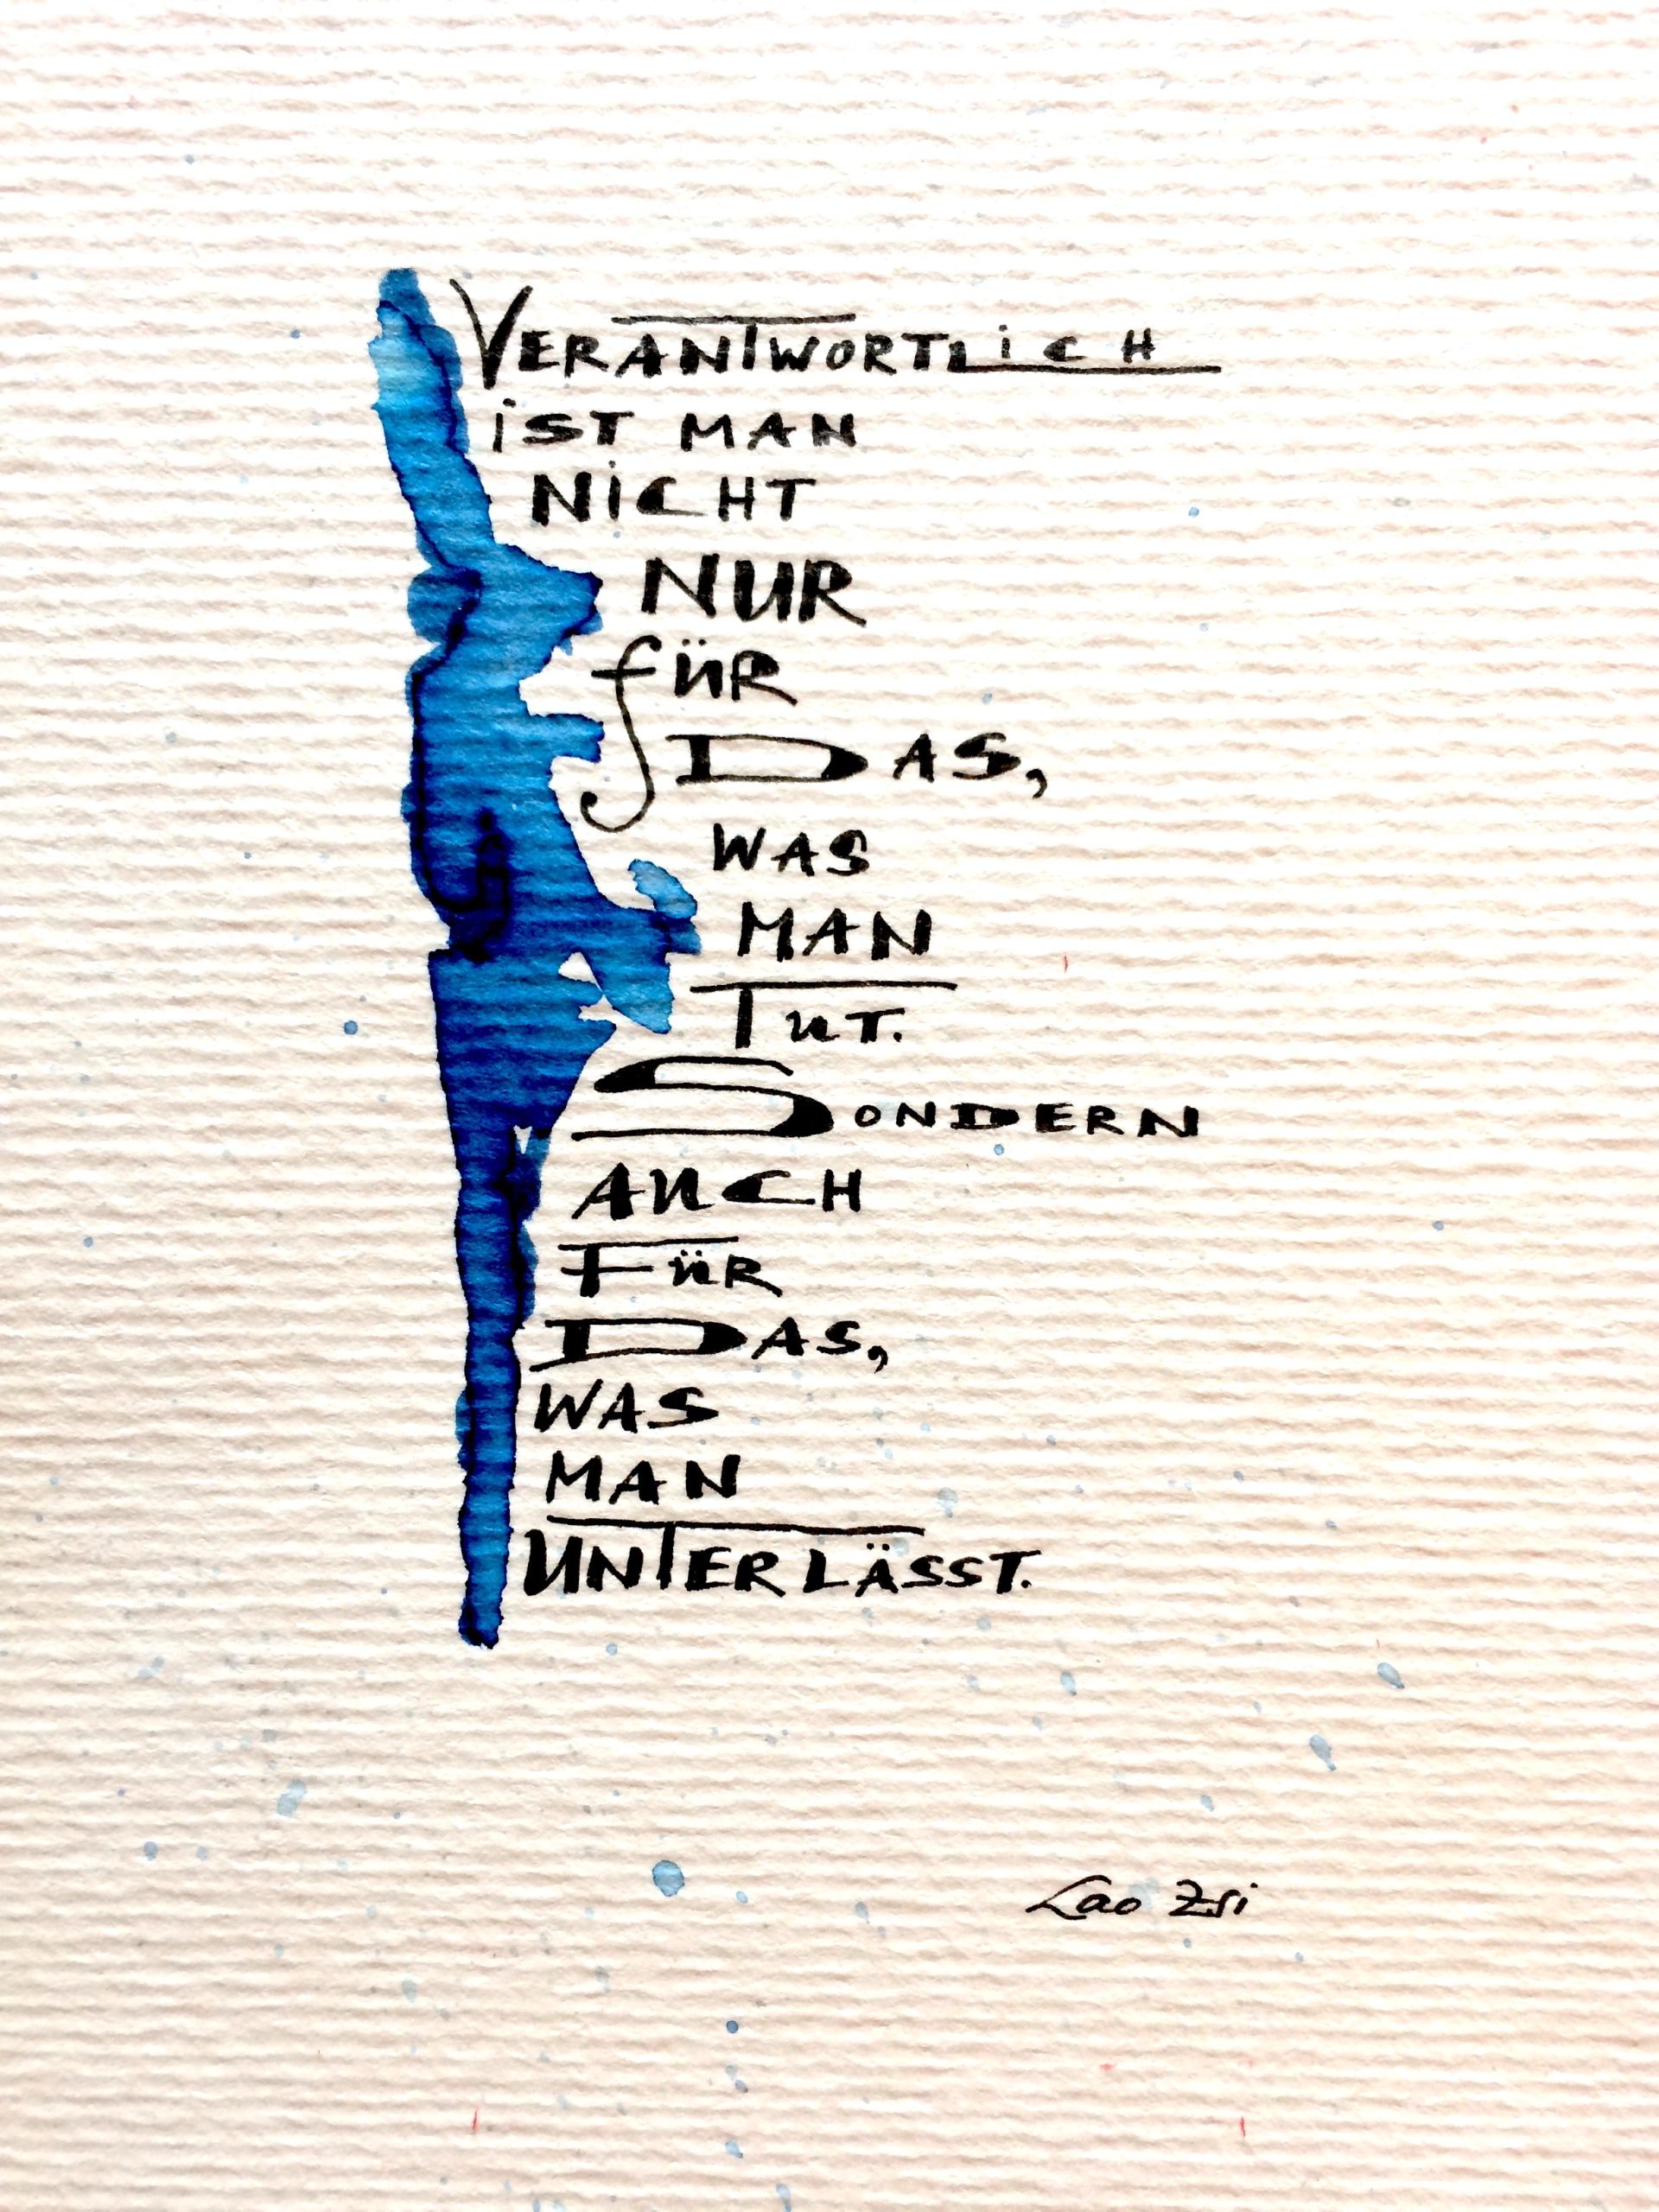 VERANTWORTLiCH
iST MAN
NiCHT
NUR
fÜR
DAS,
WAS
MAN
TUT.
SONDERN
AUCH
FÜR
DAS,
WAS
MAN
UNTERLÄSST.
Lao Zsi